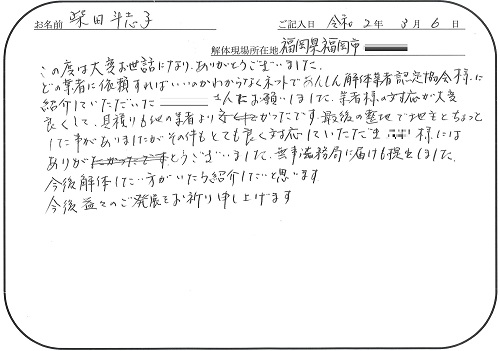 お名前 柴田斗志子 ご記入日 令和2年3月6日
解体現場所在地 福岡県福岡市
この度は大変お世話になり、ありがとうございました。
どの業者に依頼すればいいのかわからなくネットであんしん解体業者認定協会様に
紹介していただいた さんにお願いしまして、業者様の対応が大変
良くして、見積りも他の業者より安くたかったです。最後の整地で地主とちょっと
した事がありましたがその件もとても良く対応していただき 様には
ありがとうございました。無事法務局に届けも提出しました。
今後解体したい方がいたら紹介したいと思います
今後益々のご発展をお祈り申し上げます